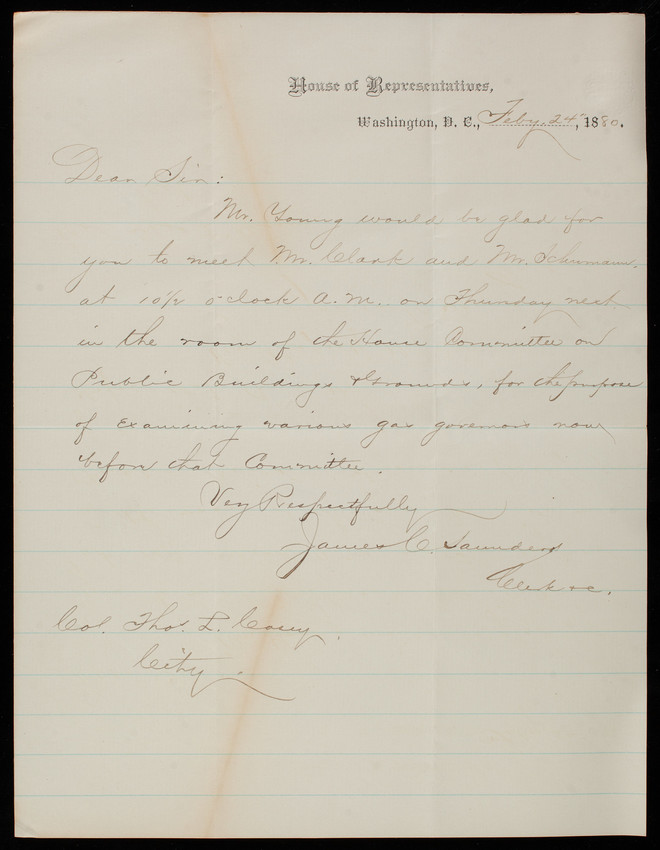 House of Representatives,
Washington, D. C., Feby. 24", 1880.
Dear Sir:
Mr. Young would be glad for
you to meet Mr. Clark and Mr. Schumann.
at 10 1/2 o'clock A.M. on Thursday next
in the room of the House Committee on
Public Buildings & Grounds, for the purpose
of examining various gas governors now
before that Committee.
Very Respectfully
James C. Saunders
Clerk &c.
Col. Thos. L. Casey,
City.